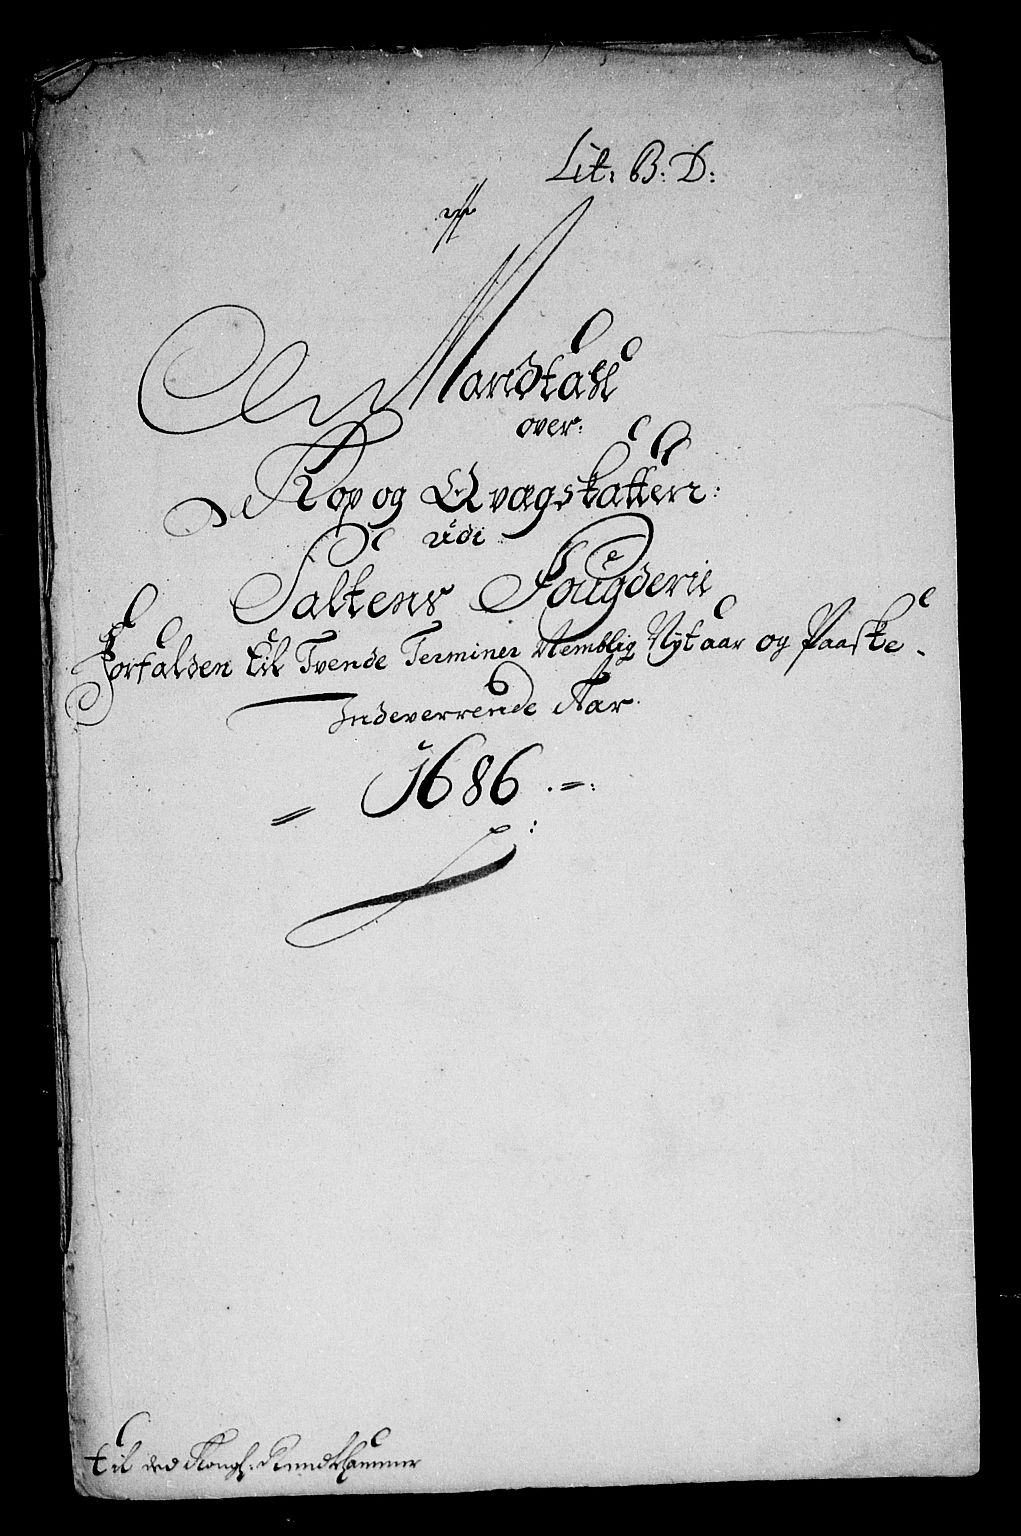 Lit: B: D:
Mandtall
over:
Kop og Qvægskatten:
udi
Saltens Fougderie
Forfalden til Tvende Terminer Nemblig Nytaar og Paaske.
Indeverrende Aar
1686
til ded Kongl: Rendtkammer